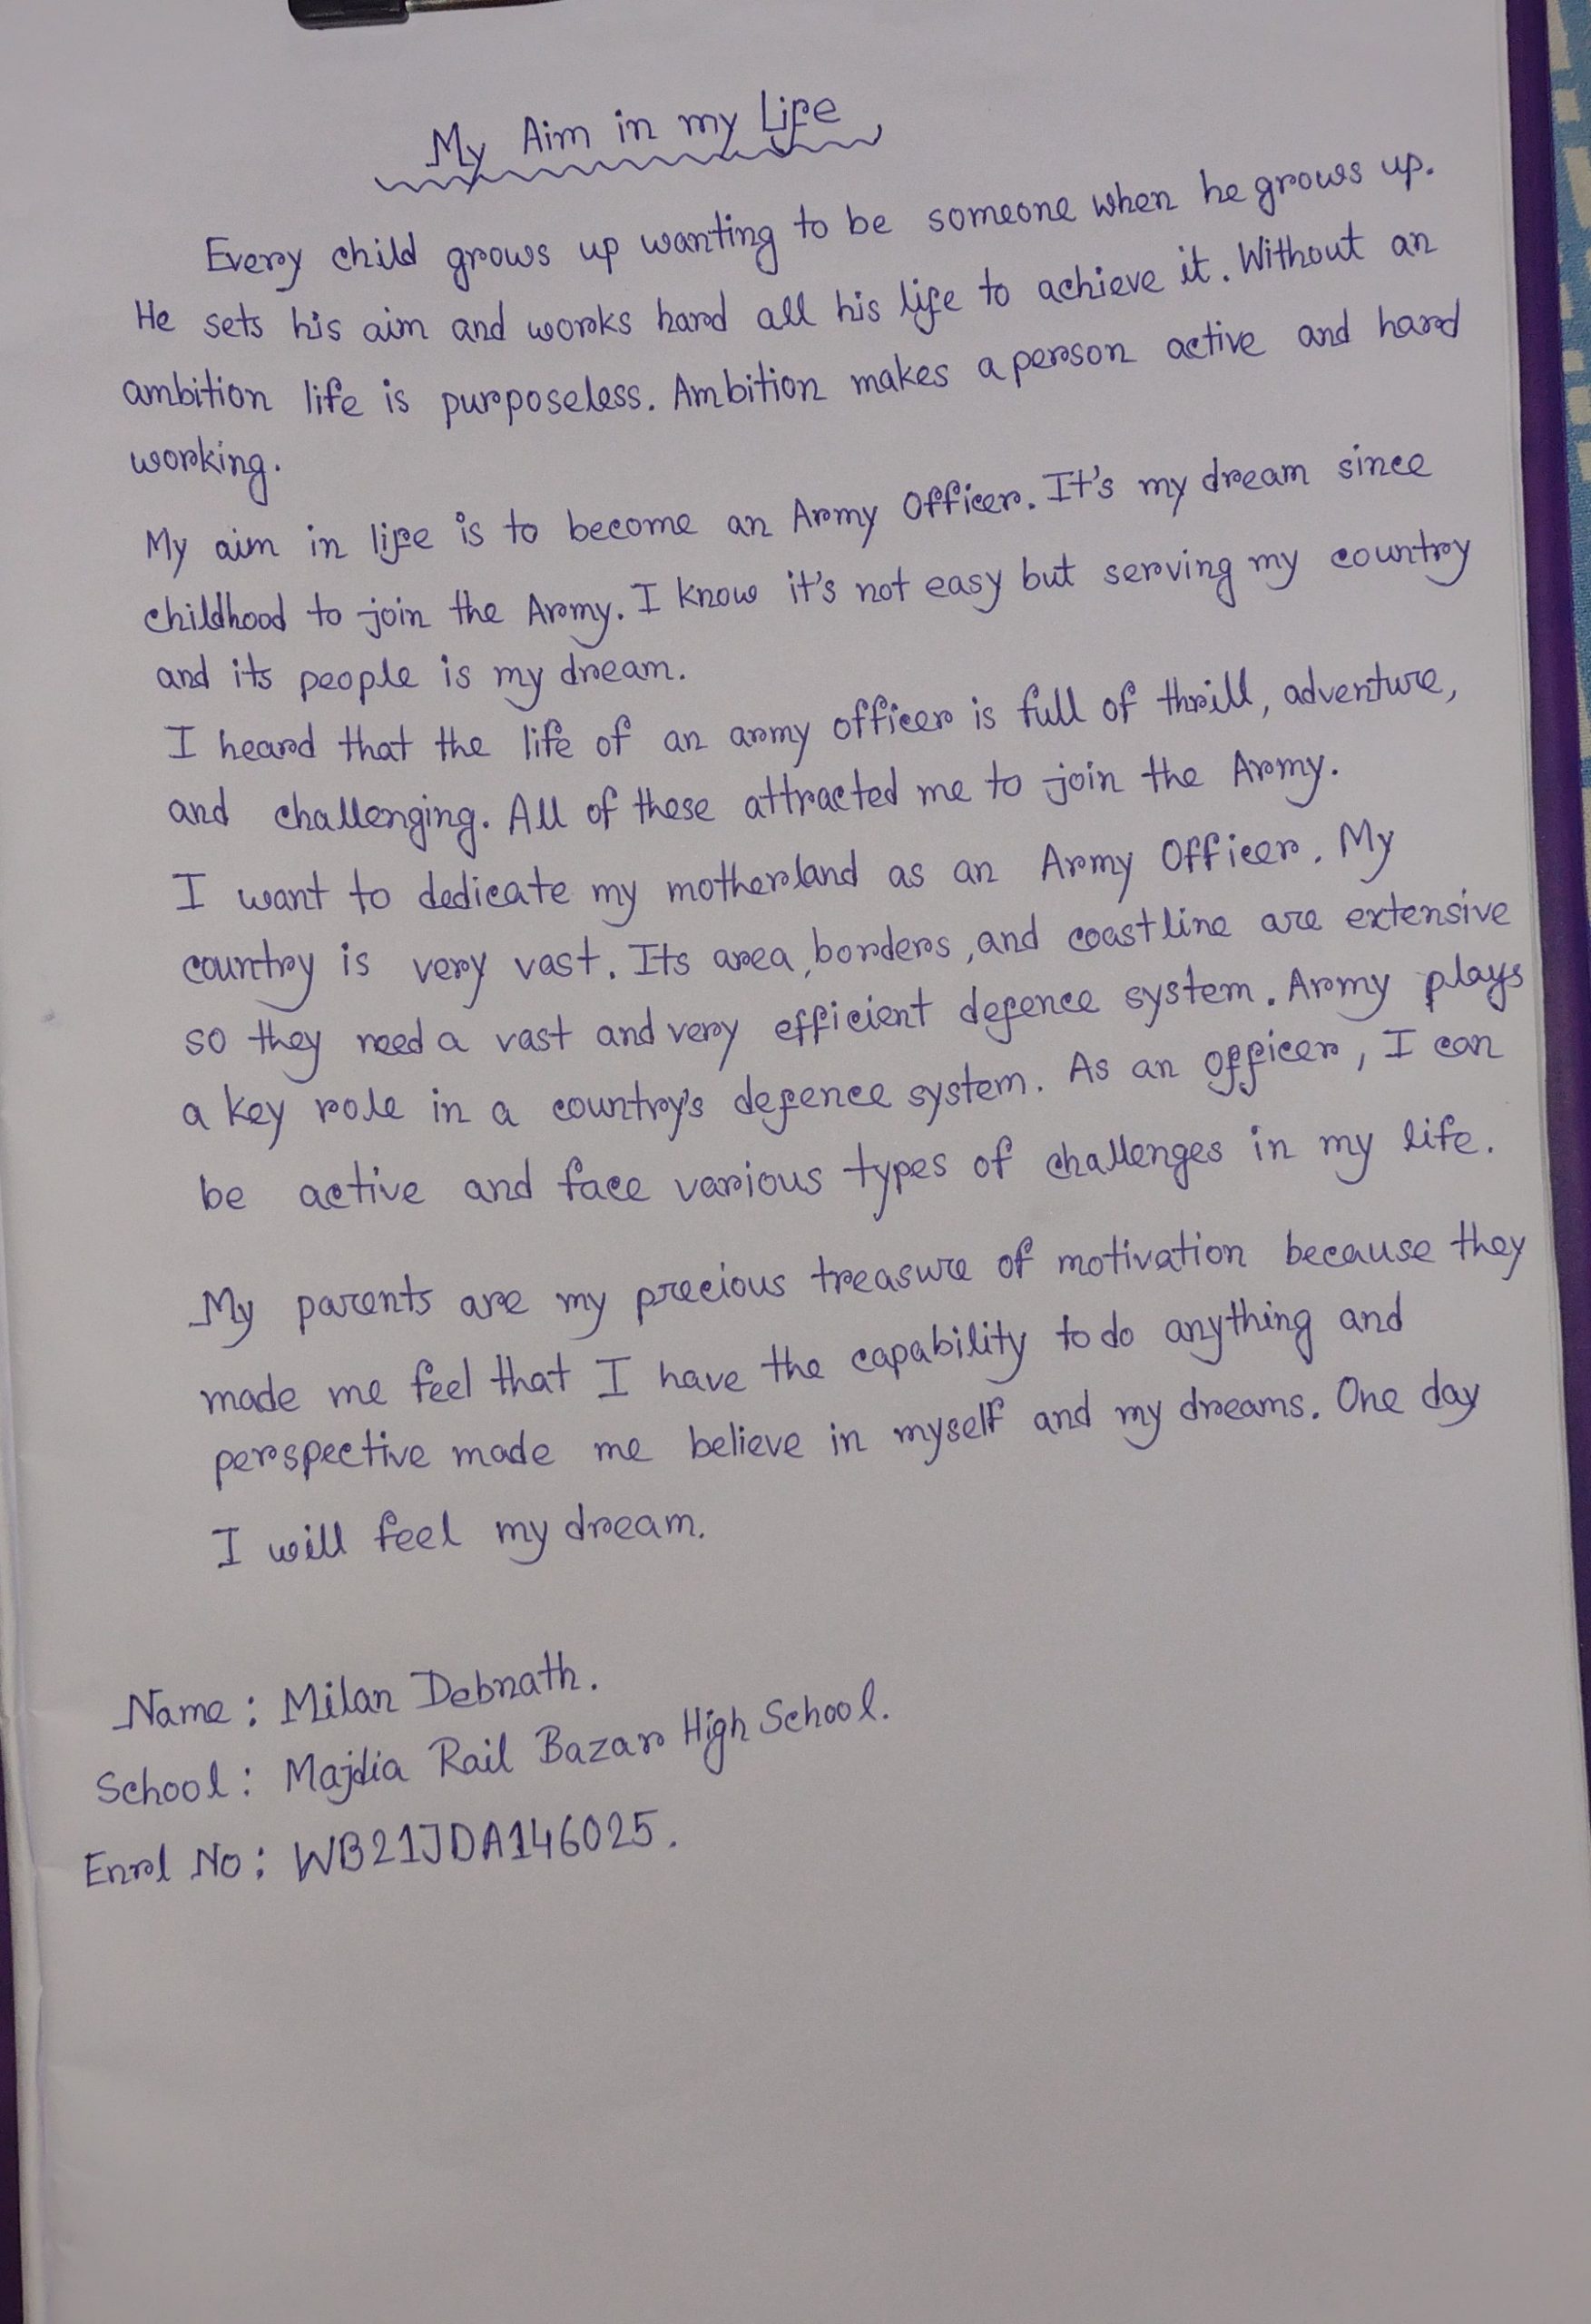 My Aim in my Life
Every child grows up wanting to be someone when he grows up.
He sets his aim and works hard all his life to achieve it. Without an
ambition life is purposeless. Ambition makes a person active and hard
working.
My aim in life is to become an Army Officer. It's my dream since
childhood to join the Army. I know it's not easy but serving my country
and its people is my dream.
I heard that the life of an army officer is full of thrill, adventure,
and challenging. All of these attracted me to join the Army.
I want to dedicate my motherland as an Army Officer. My
country is very vast. Its area, borders, and coastline are extensive
so they need a vast and very efficient defence system. Army plays
a key role in a country's defence system. As an officer, I can
be active and face various types of challenges in my life.
My parents are my precious treasure of motivation because they
made me feel that I have the capability to do anything and
perspective made me believe in myself and my dreams. One day
I will feel my dream.
Name : Milan Debnath.
School : Majdia Rail Bazar High School.
Enrol No : WB21JDA146025.